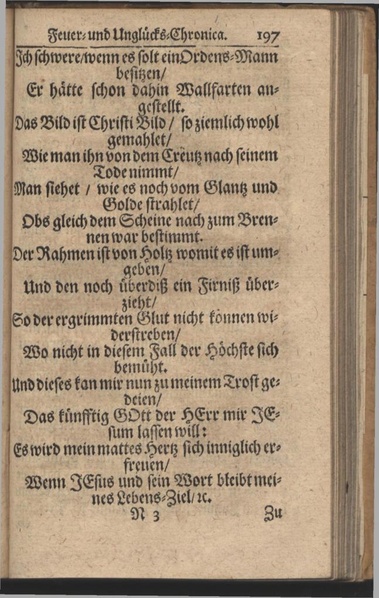 Feuer- und Unglücks-Chronica. 197
Ich schwere/wenn es solt ein Ordens-Mann
besitzen/
Er hätte schon dahin Wallfarten an-
gestellt.
Das Bild ist Christi Bild / so ziemlich wohl
gemahlet/
Wie man ihn von dem Creutz nach seinem
Tode nimmt/
Man siehet / wie es noch vom Glantz und
Golde strahlet/
Obs gleich dem Scheine nach zum Bren-
nen war bestimmt.
Der Rahmen ist von Holtz womit es ist um-
geben/
Und den noch überdiß ein Firniß über-
zieht/
So der ergrimmten Glut nicht können wi-
derstreben/
Wo nicht in diesem Fall der Höchste sich
bemüht.
Und dieses kan mir nun zu meinem Trost ge-
deien/
Das künfftig GOtt der HErr mir JE-
sum lassen will:
Es wird mein mattes Hertz sich inniglich er-
freuen/
Wenn JEsus und sein Wort bleibt mei-
nes Lebens-Ziel/ ꝛc.
N 3 Zu